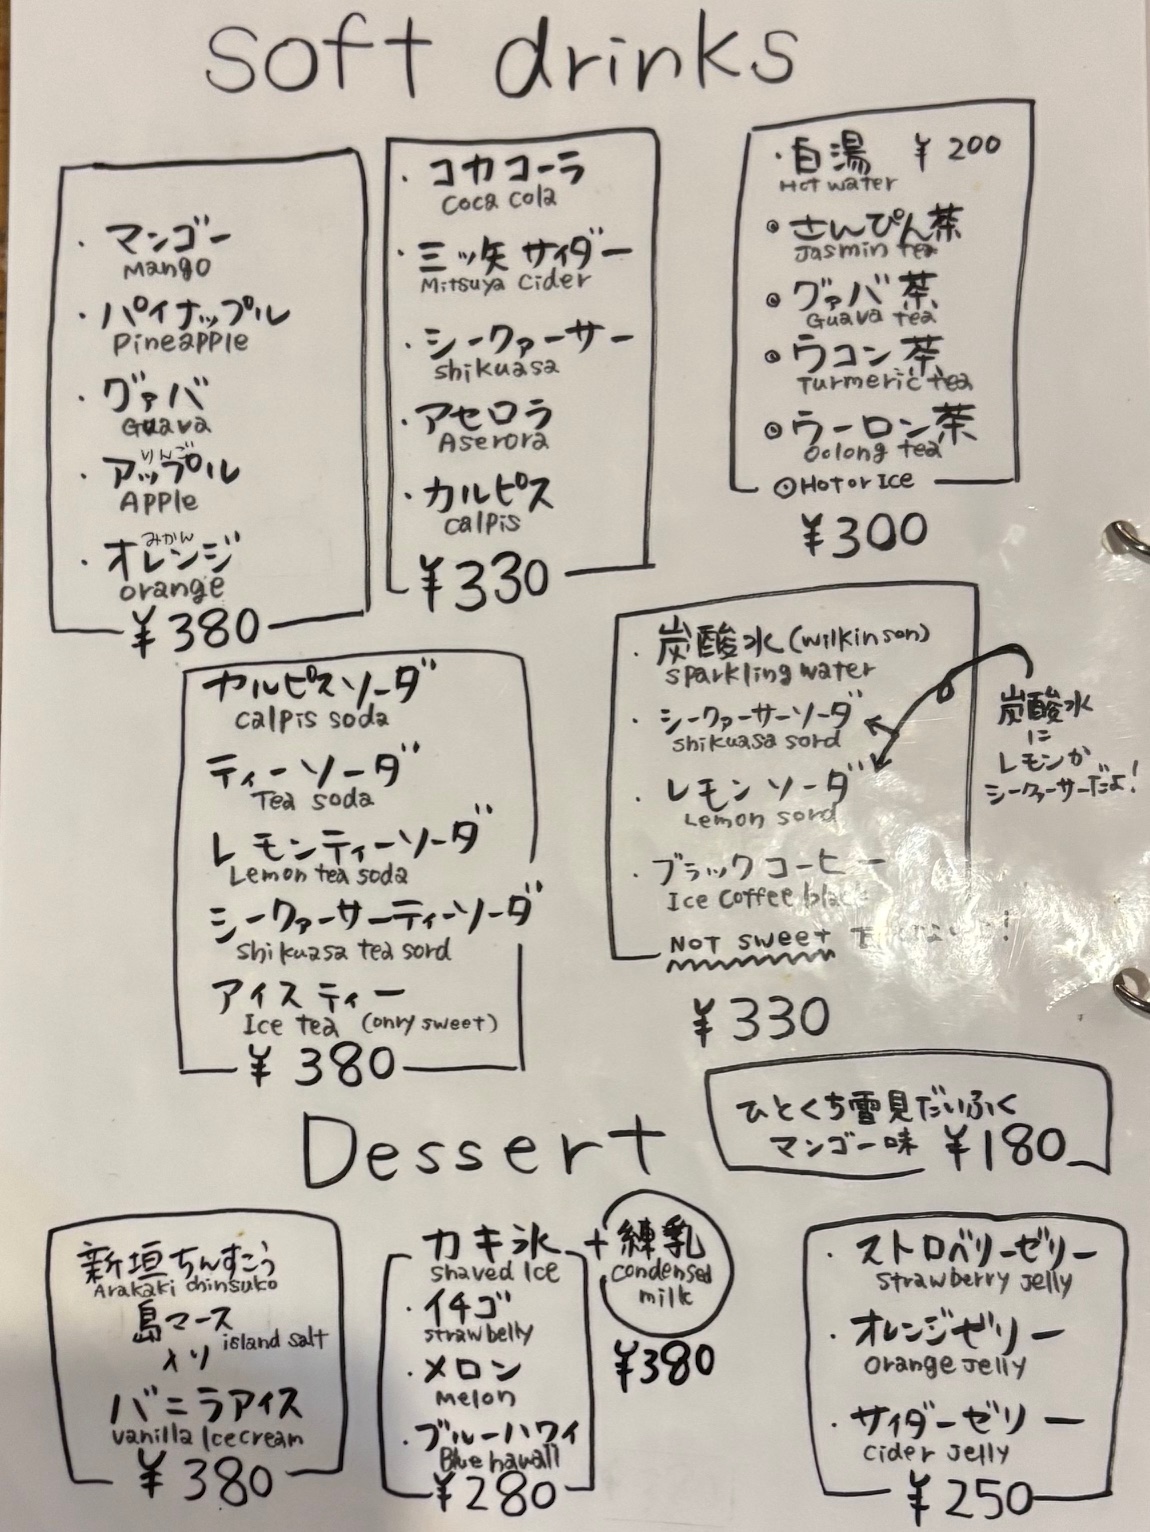 soft drinks
・マンゴー
Mango
・パイナップル
Pineapple
・グァバ
Guava
りんご
・アップル
Apple
みかん
・オレンジ
orange
¥380
・コカコーラ
Coca cola
・三ッ矢サイダー
Mitsuya Cider
・シークァーサー
shikuasa
・アセロラ
Aserora
・カルピス
calpis
¥330
・白湯 ¥200
Hot water
◎さんぴん茶
Jasmin tea
◎グァバ茶
Guava tea
◎ウコン茶
Turmeric tea
◎ウーロン茶
Oolong tea
◎Hot or Ice
¥300
カルピスソーダ
calpis soda
ティーソーダ
Tea soda
レモンティーソーダ
Lemon tea soda
シークァーサーティーソーダ
shikuasa tea sord
アイスティー
Ice tea (onry sweet)
¥380
・炭酸水(wilkinson)
sparkling water
・シークァーサーソーダ
shikuasa sord
・レモンソーダ
Lemon sord
・ブラックコーヒー
Ice coffee
Not sweet
¥330
炭酸水
に
レモンか
シークァーサーだよ!
Dessert
ひとくち雪見だいふく
マンゴー味 ¥180
新垣ちんすこう
Arakaki chinsuko
島マース
island salt
入り
バニラアイス
vanilla Icecream
¥380
カキ氷
shaved Ice
・イチゴ
strawbelly
・メロン
Melon
・ブルーハワイ
Blue hawaii
¥280
+練乳
condensed
milk
¥380
・ストロベリーゼリー
strawberry jelly
・オレンジゼリー
orange jelly
・サイダーゼリー
cider jelly
¥250